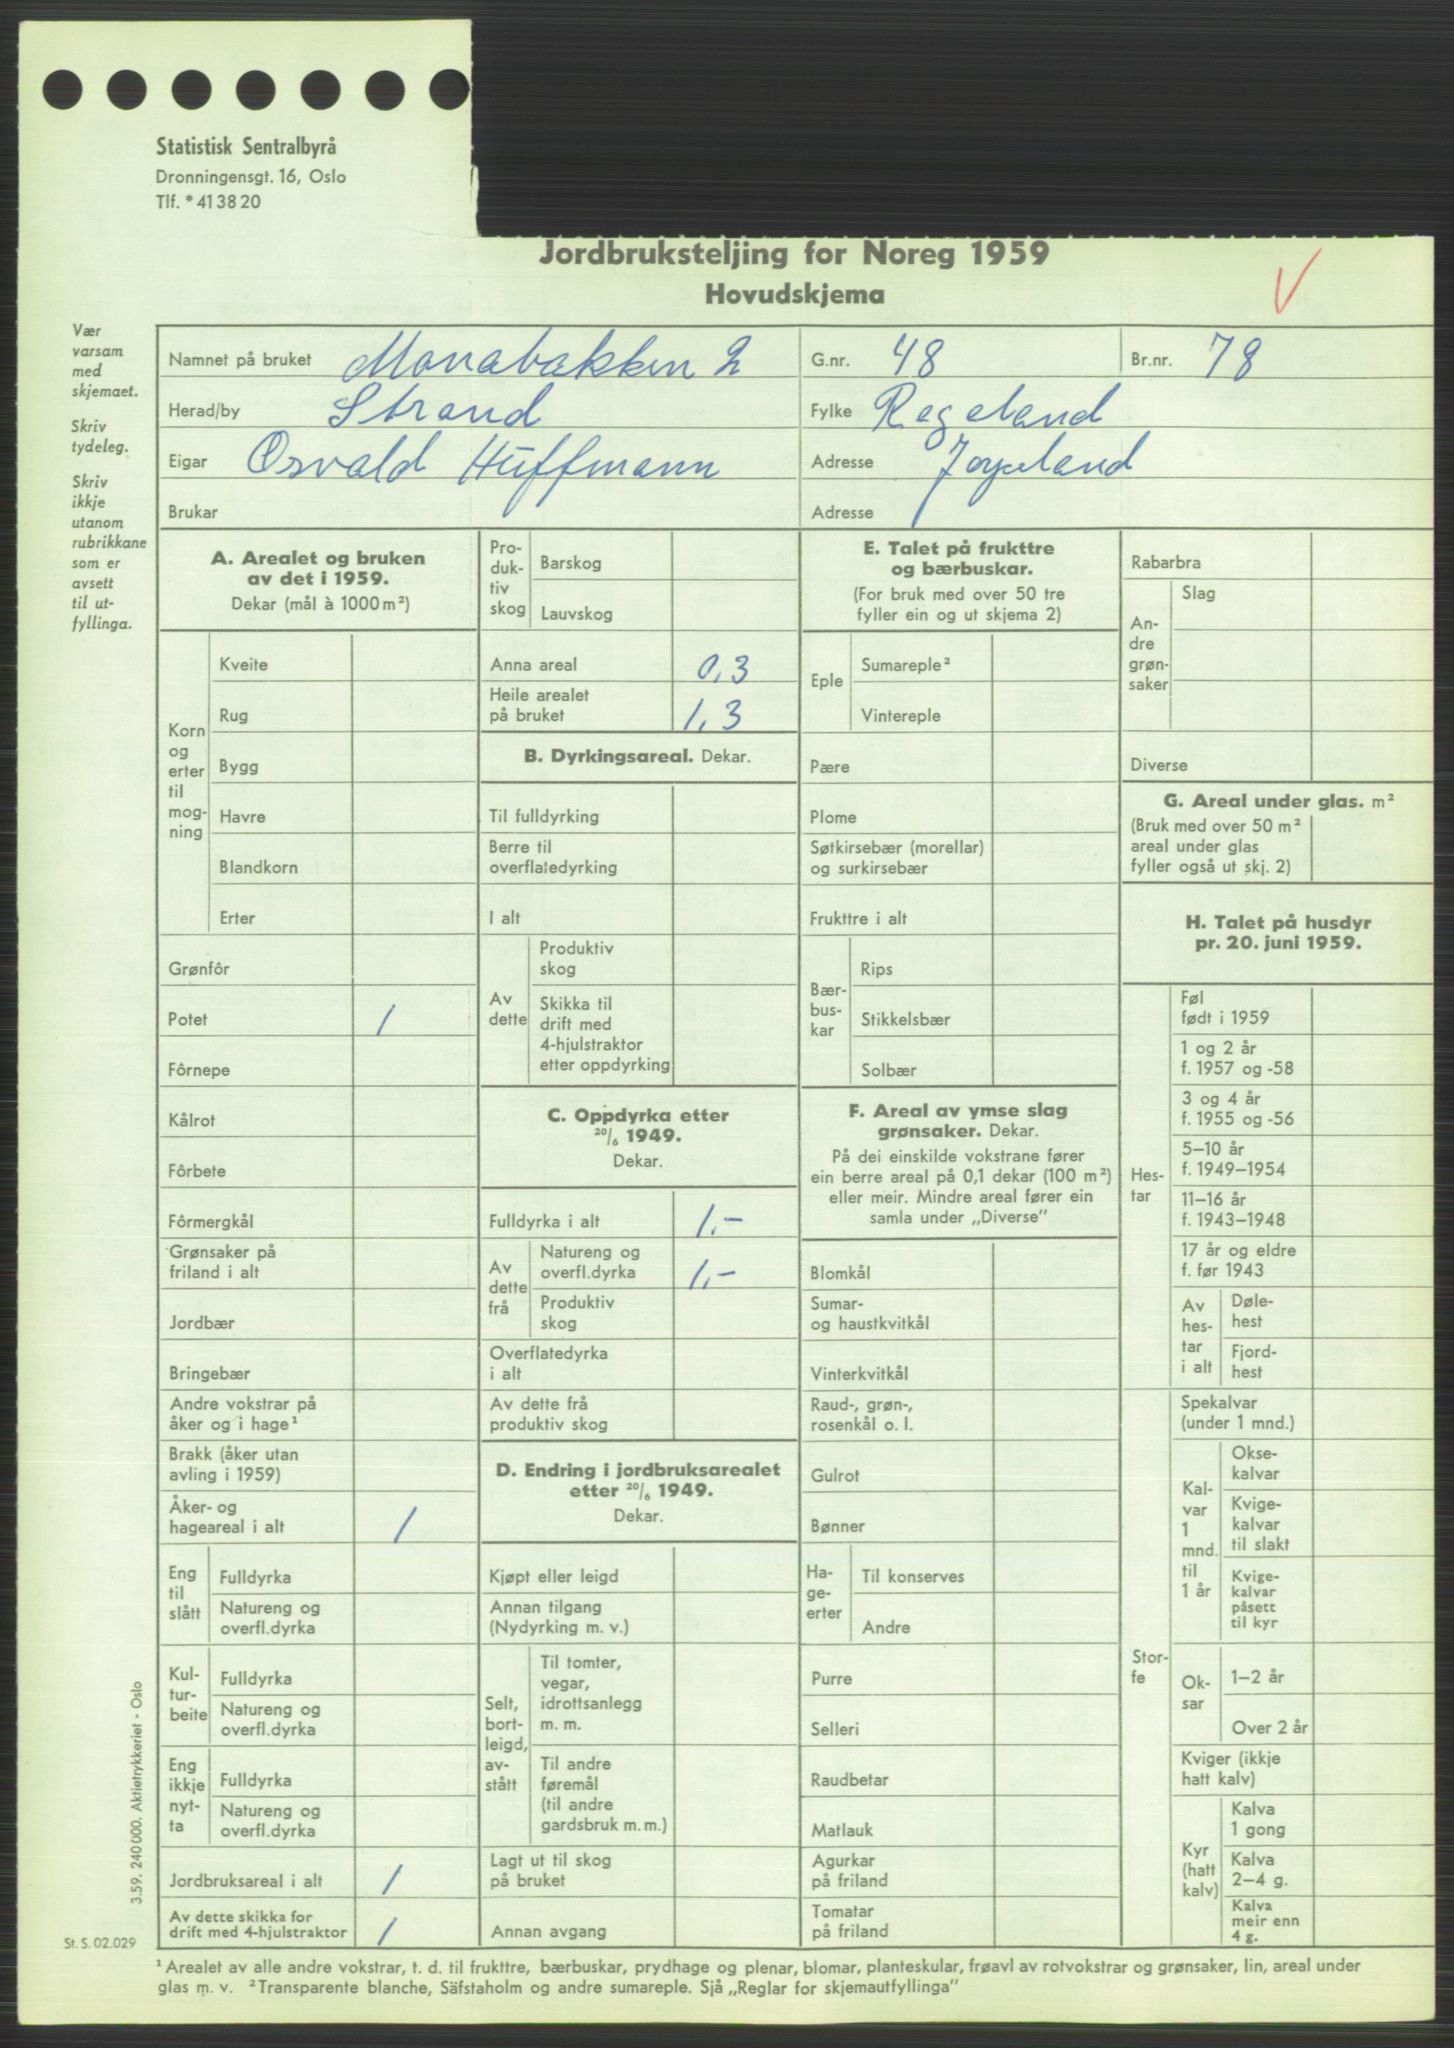 Statistisk Sentralbyrå
Dronningensgt. 16, Oslo
Tlf. * 41 38 20
Jordbruksteljing for Noreg 1959
Hovudskjema
Vær
varsam
med
skjemaet.
Skriv
tydeleg.
Skriv
ikkje
utanom
rubrikkane
som er
avsett
til ut-
fyllinga.
Namnet på bruket Monabakken 2 G.nr. 48 Br.nr. 78
Herad/by Strand Fylke Rogaland
Eigar Osvald Huffmann Adresse Jørpeland
Brukar Adresse
A. Arealet og bruken
av det i 1959.
Dekar (mål à 1000 m²)
Korn
og
erter
til
mog-
ning
Kveite
Rug
Bygg
Havre
Blandkorn
Erter
Grønfôr
Potet 1
Fôrnepe
Kålrot
Fôrbete
Fôrmergkål
Grønsaker på
friland i alt
Jordbær
Bringebær
Andre vokstrar på
åker og i hage¹
Brakk (åker utan
avling i 1959)
Åker- og
hageareal i alt 1
Eng
til
slått
Fulldyrka
Natureng og
overfl.dyrka
Kul-
tur-
beite
Fulldyrka
Natureng og
overfl.dyrka
Eng
ikkje
nyt-
ta
Fulldyrka
Natureng og
overfl.dyrka
Jordbruksareal i alt 1
Av dette skikka for
drift med 4-hjulstraktor 1
Pro-
duk-
tiv
skog
Barskog
Lauvskog
Anna areal 0,3
Heile arealet
på bruket 1,3
B. Dyrkingsareal. Dekar.
Til fulldyrking
Berre til
overflatedyrking
I alt
Av
dette
Produktiv
skog
Skikka til
drift med
4-hjulstraktor
etter oppdyrking
C. Oppdyrka etter
20/6 1949.
Dekar.
Fulldyrka i alt 1,-
Av
dette
frå
Natureng og
overfl.dyrka 1,-
Produktiv
skog
Overflatedyrka
i alt
Av dette frå
produktiv skog
D. Endring i jordbruksarealet
etter 20/6 1949.
Dekar.
Kjøpt eller leigd
Annan tilgang
(Nydyrking m. v.)
Selt,
bort-
leigd,
av-
stått
Til tomter,
vegar,
idrottsanlegg
m. m.
Til andre
føremål
(til andre
gardsbruk m. m.)
Lagt ut til skog
på bruket
Annan avgang
E. Talet på frukttre
og bærbuskar.
(For bruk med over 50 tre
fyller ein og ut skjema 2)
Eple
Sumareple²
Vintereple
Pære
Plome
Søtkirsebær (morellar)
og surkirsebær
Frukttre i alt
Bær-
bus-
kar
Rips
Stikkelsbær
Solbær
F. Areal av ymse slag
grønsaker. Dekar.
På dei einskilde vokstrane fører
ein berre areal på 0,1 dekar (100 m²)
eller meir. Mindre areal fører ein
samla under „Diverse”
Blomkål
Sumar-
og haustkvitkål
Vinterkvitkål
Raud-, grøn-,
rosenkål o. l.
Gulrot
Bønner
Ha-
ge-
erter
Til konserves
Andre
Purre
Selleri
Raudbetar
Matlauk
Agurkar
på friland
Tomatar
på friland
Rabarbra
An-
dre
grøn-
saker
Slag
Diverse
G. Areal under glas. m²
(Bruk med over 50 m²
areal under glas
fyller også ut skj. 2)
H. Talet på husdyr
pr. 20. juni 1959.
Hes-
tar
Føl
født i 1959
1 og 2 år
f. 1957 og -58
3 og 4 år
f. 1955 og -56
5–10 år
f. 1949–1954
11–16 år
f. 1943–1948
17 år og eldre
f. før 1943
Av
hes-
tar
i alt
Døle-
hest
Fjord-
hest
Stor-
fe
Spekalvar
(under 1 mnd.)
Kal-
var
1
mnd.
til
1 år
Okse-
kalvar
Kvige-
kalvar
til slakt
Kvige-
kalvar
påsett
til kyr
Ok-
sar
1–2 år
Over 2 år
Kviger (ikkje
hatt kalv)
Kyr
(hatt
kalv)
Kalva
1 gong
Kalva
2–4 g.
Kalva
meir enn
4 g.
3.59. 240 000. Aktietrykkeriet - Oslo
St. S. 02.029
¹ Arealet av alle andre vokstrar, t. d. til frukttre, bærbuskar, prydhage og plenar, blomar, planteskular, frøavl av rotvokstrar og grønsaker, lin, areal under
glas m. v. ² Transparente blanche, Säfstaholm og andre sumareple. Sjå „Reglar for skjemautfyllinga”